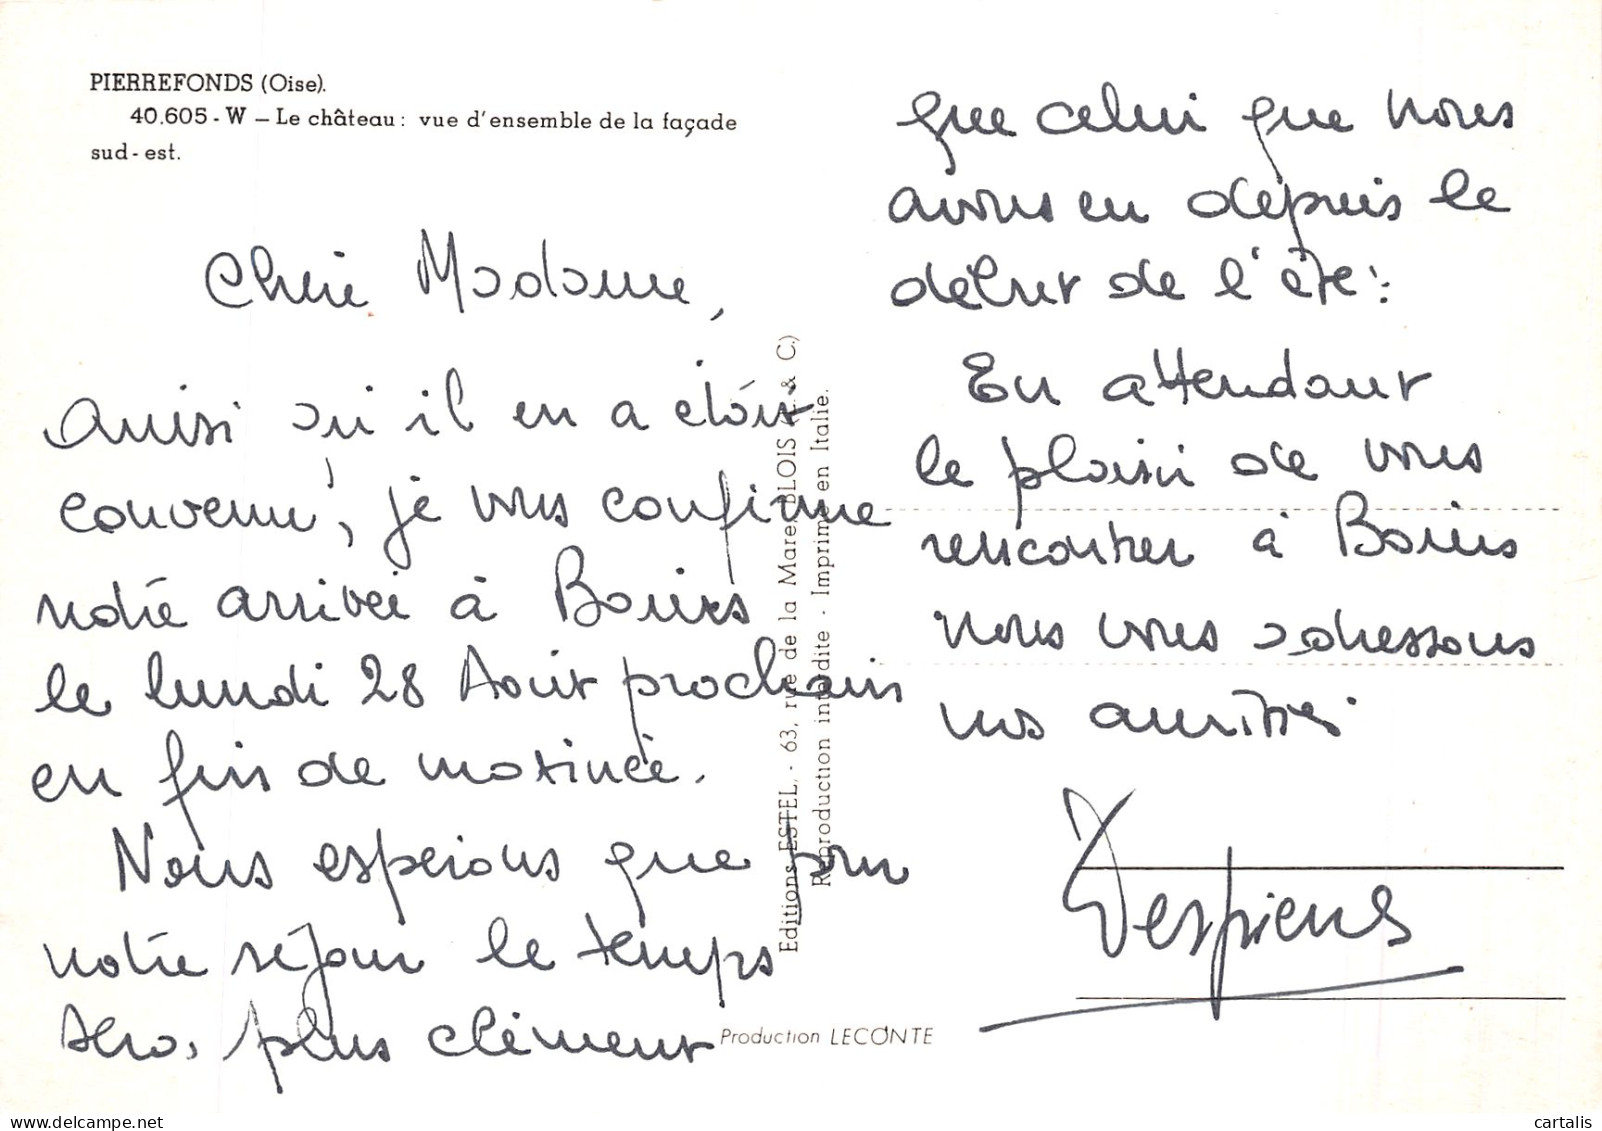 PIERREFONDS (Oise).
40.605 - W – Le château : vue d'ensemble de la façade
sud-est.
Chère Madame,
Ainsi qu'il en a étoit
convenu, je vous confirme
notre arrivée à
le lundi 28 Août prochain
en fin de matinée.
Nous espérons que pour
notre séjour le temps
sera, plus clément
que celui que nous
avons eu depuis le
début de l'été.
En attendant
le plaisir de vous
rencontrer à
nous vous adressons
nos amitiés.
Despiens
Editions ESTEL, - 63, rue de la Mare, BLOIS (L. & C.)
Reproduction interdite - Imprimé en Italie.
Production LECONTE
cartalis
delcampe.net